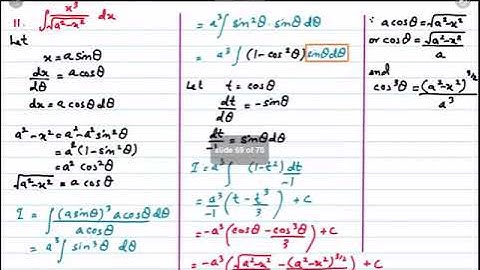 11. ∫ x³/√(a²-x²) dx
Let
x = a sinθ
dx/dθ = a cosθ
dx = a cosθ dθ
a²-x² = a²-a²sin²θ
= a²(1-sin²θ)
= a² cos²θ
√(a²-x²) = a cosθ
I = ∫ (a sinθ)³ a cosθ dθ / a cosθ
= a³∫ sin³θ dθ
= a³∫ sin²θ · sinθ dθ
= a³∫ (1-cos²θ) sinθ dθ
Let t = cosθ
dt/dθ = -sinθ
dt/-1 = sinθ dθ
slide 69 of 70
I = a³∫ (1-t²) dt/-1
= a³/-1 (t - t³/3) + c
= -a³(cosθ - cos³θ/3) + c
= -a³(√(a²-x²) - (a²-x²)^3/2) + c
∵ a cosθ = √(a²-x²)
or cosθ = √(a²-x²)/a
and
cos³θ = (a²-x²)^3/2 / a³